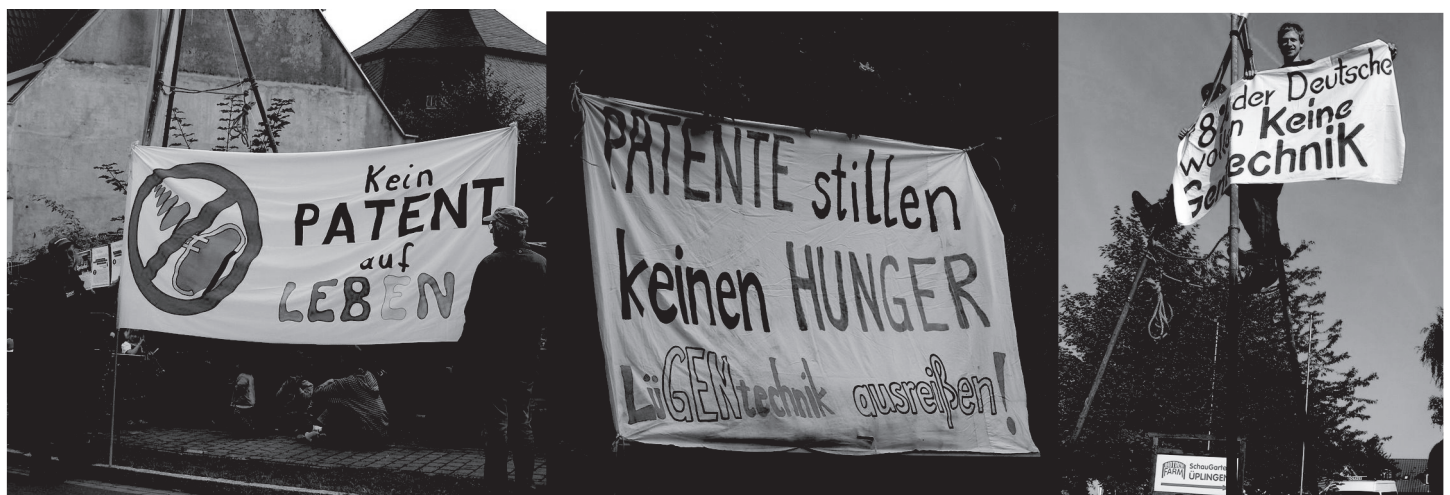 Kein
PATENT
auf
LEBEN
PATENTE stillen
keinen HUNGER
LüGENtechnik ausreißen!
der Deutsche
Keine
FARM
SchauGarte
ÜPLINGEN